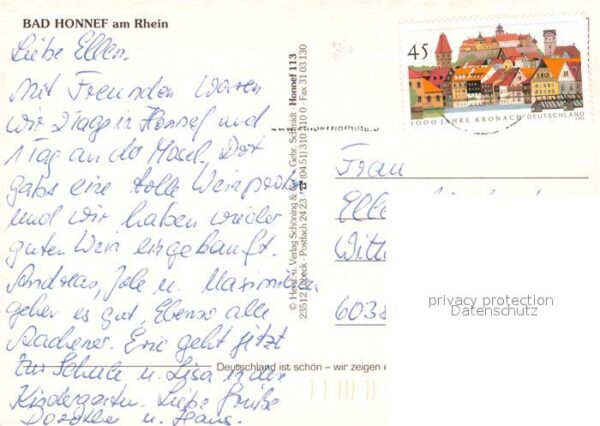 BAD HONNEF am Rhein
Liebe Ellen.
Mit Freunden waren
wir Tage in Honnef und
1 Tag an der Mosel. Dort
gabs eine tolle Weinprobe
und wir haben wieder
guten Wein eingekauft.
Andreas, u. Maximilian
geht es gut, Ebenso alle
Aachener. Eric geht jetzt
zur Schule u. Lisa in den
Kindergarten. Liebe Grüße
Dorothee u. Hans.
© Herst. u. Verlag Schöning & Gebr. Schmidt · Honnef 113
23512 Lübeck · Postfach 24 23 · ☎ (04 51) 310 310 0 · Fax 31 03 130
Deutschland ist schön – wir zeigen
45
1000 JAHRE KRONACH
DEUTSCHLAND
Frau
Elle
Witt
6038
privacy protection
Datenschutz